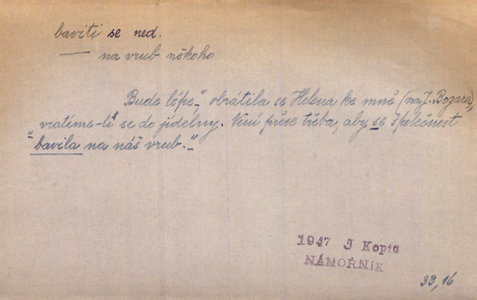 baviti se ned.
na vrub někoho
Bude lépe," obrátila se Helena ke mně (na J. Bozara),
vrátíme-li se do jídelny. Není přece třeba, aby se společnost
"bavila na náš vrub."
1937 J Kopta
NÁMOŘNÍK
33, 16